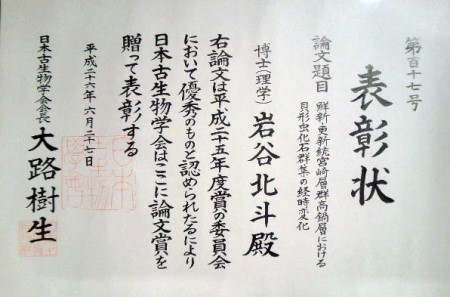 第百十七号
表彰状
論文題目
鮮新・更新統宮崎層群高鍋層における
貝形虫化石群集の経時変化
博士(理学) 岩谷北斗殿
右論文は平成二十五年度賞の委員会
において優秀のものと認められたるにより
日本古生物学会はここに論文賞を
贈って表彰する
平成二十六年六月二十七日
日本古生物学会会長 大路樹生